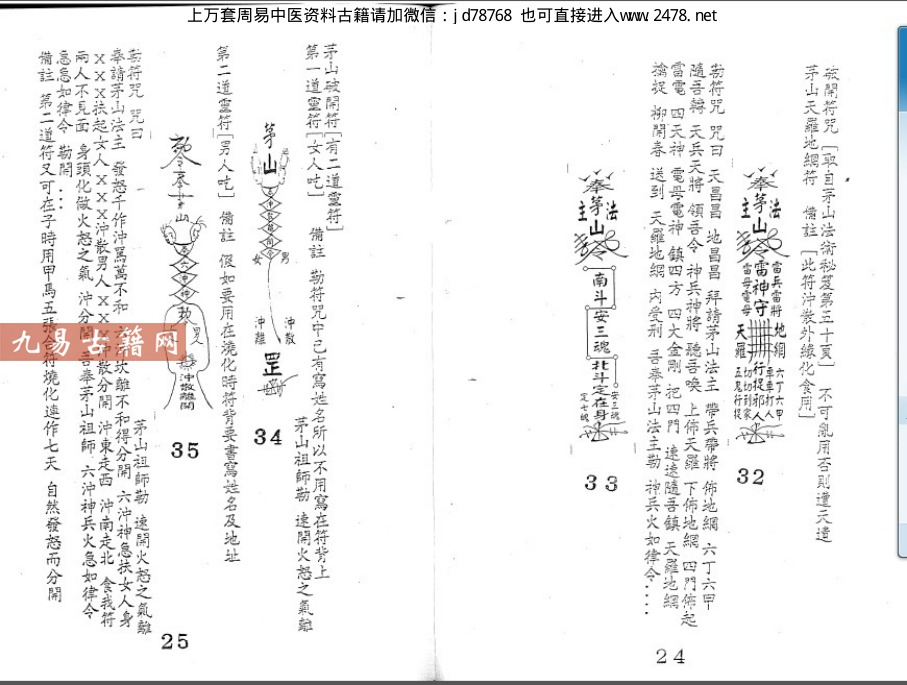 上万套周易中医资料古籍请加微信：jd78768 也可直接进入www.2478.net
破開符咒〔取自茅山法術秘笈第五十頁〕 不可亂用否則遭天遣
茅山天羅地網符 備註〔此符沖散外緣化食用〕
奉
法
主
茅山
令
雷神守
雷兵雷將
雷母電母
地網
天羅
行捉邪人
六丁六甲
五鬼行捉
32
勅符咒 咒曰 天昌昌 地昌昌 拜請茅山法主 帶兵帶將 佈地網 六丁六甲
隨吾轉 天兵天將 領吾令 神兵神將 聽吾喚 上佈天羅 下佈地網 四門佈起
雷電 四天神 電母電神 鎮四方 四大金剛 把四門 速速隨吾鎮 天羅地網
擒捉 柳開春 送到 天羅地網 內受刑 吾奉茅山法主勅 神兵火如律令....
奉
法
主
茅山
令
南斗安三魂
北斗定在身
安三魂
定七魄
33
24
茅山破開符〔有二道靈符〕
第一道靈符〔女人吃〕 備註 勅符咒中已有寫姓名所以不用寫在符背上
茅山祖師勅 速開火怒之氣離
茅山
男
女
沖散
沖離
罡
34
第二道靈符〔男人吃〕 備註 假如要用在澆化時符背要書寫姓名及地址
山
六沖神
男人
沖散離開
35
茅山祖師勅 速開火怒之氣離
勅符咒 咒曰
奉請茅山法主 發怒千作沖罵萬不和 六沖坎離不和得分開 六沖神急扶女人身
XXX扶起女人XXX沖散男人XXX沖散分開 沖東走西 沖南走北 食我符
兩人不見面 身頭化做火怒之氣 沖分開 吾奉茅山祖師 六沖神兵火急如律令
急急如律令 勅開...
備註 第二道符又可在子時用甲馬五張合符燒化連作七天 自然發怒而分開
25
九易古籍网